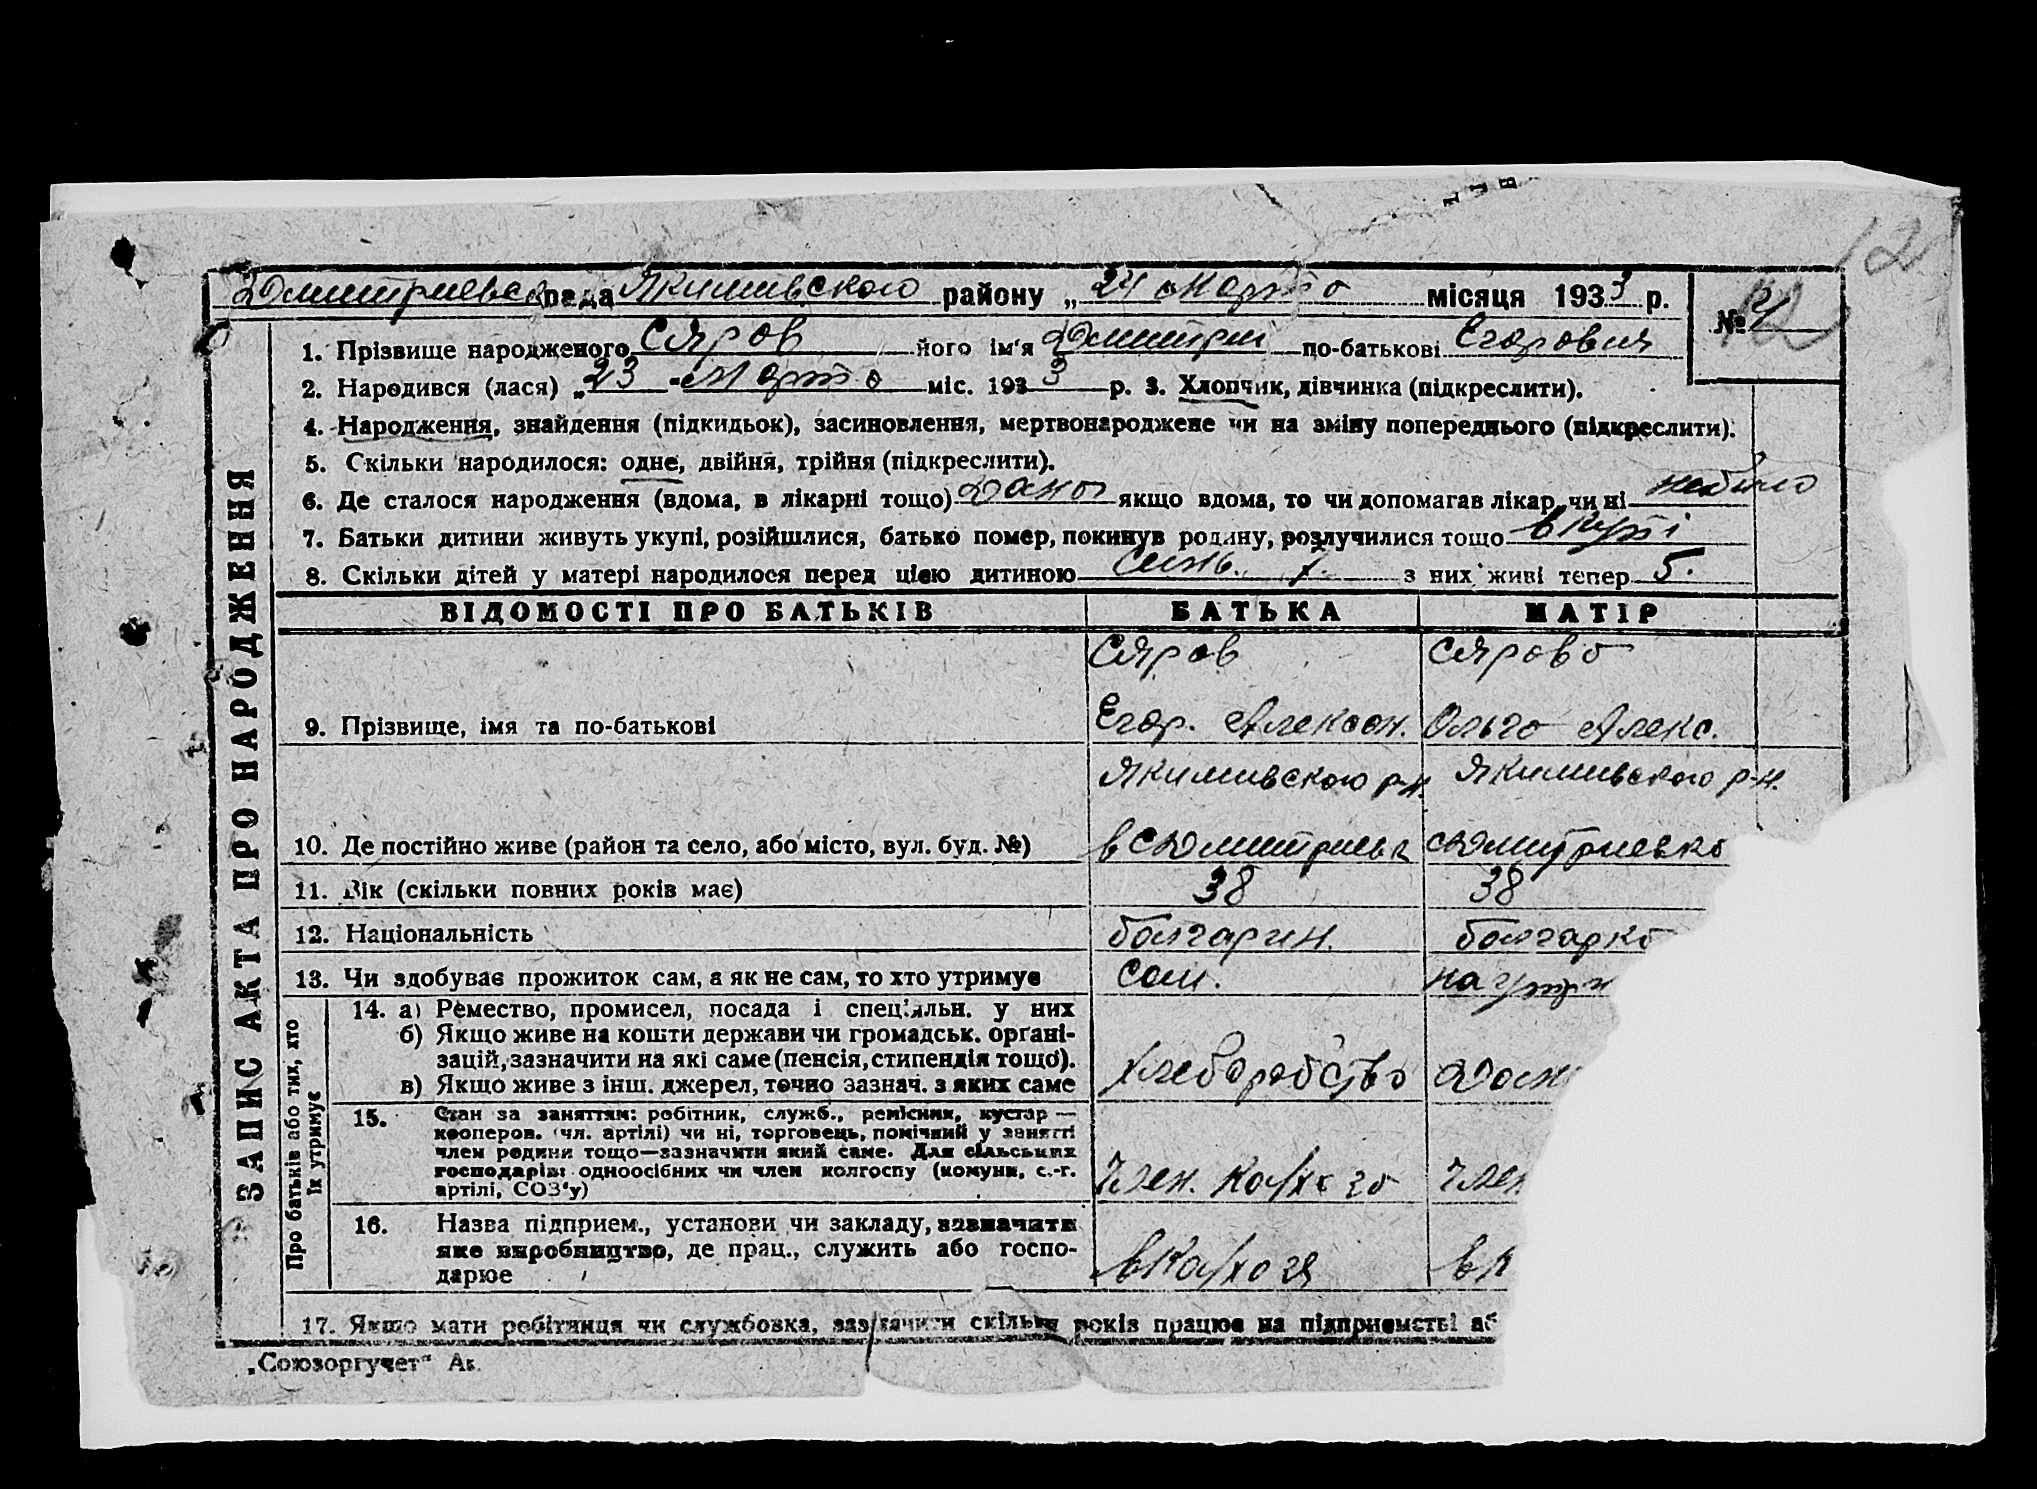 12
Дмитриевса рада Якимивского району „ 24 марта місяця 1933 р.
№
1. Прізвище народженого Сяров його ім'я Дмитрий по-батькові Егорович
2. Народився (лася) „ 23 " Марта міс. 1933 р. 3. Хлопчик, дівчинка (підкреслити).
4. Народження, знайдення (підкидьок), засиновлення, мертвонароджене чи на зміну попереднього (підкреслити).
5. Скільки народилося: одне, двійня, трійня (підкреслити).
6. Де сталося народження (вдома, в лікарні тощо) Дома якщо вдома, то чи допомагав лікар, чи ні небило
7. Батьки дитини живуть укупі, розійшлися, батько помер, покинув родину, розлучилися тощо вкупі
8. Скільки дітей у матері народилося перед цією дитиною семь. 7. з них живі тепер 5.
ВІДОМОСТІ ПРО БАТЬКІВ БАТЬКА МАТІР
Сяров Сярова
9. Прізвище, імя та по-батькові Егор. Алексан. Ольга Алекс.
Якимивского р-н. Якимивского р-н.
10. Де постійно живе (район та село, або місто, вул. буд. №) в с Дмитриевк с Дмитриевка
11. Вік (скільки повних років має) 38 38
12. Національність болгарин. болгарка
13. Чи здобуває прожиток сам, а як не сам, то хто утримує сам. на утри
14. а) Ремество, промисел, посада і спеціяльн. у них
б) Якщо живе на кошти держави чи громадськ. органі-
зацій, зазначити на які саме (пенсія, стипендія тощо).
в) Якщо живе з інш. джерел, точно зазнач. з яких саме хлеборобство Дома
15. Стан за заняттям: робітник, служб., ремісник, кустар —
кооперов. (чл. артілі) чи ні, торговець, помічний у занятті
член родини тощо—зазначити який саме. Для сільських
господарів: одноосібних чи член колгоспу (комуни, с.-г.
артілі, СОЗ'у) Член. Колхоза Член
16. Назва підприєм., установи чи закладу, зазначити
яке виробництво, де прац., служить або госпо-
дарює вКолхозя вК
17. Якщо мати робітниця чи службовка, зазначити скільки років працює на підприємстві аб
„Союзоргучет“ Ак.
ЗАПИС АКТА ПРО НАРОДЖЕННЯ
Про батьків або тих, хто
їх утримує